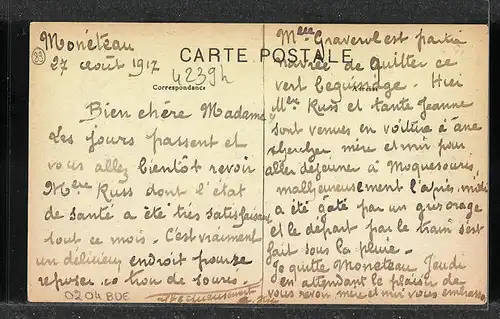 Monéteau
27 août 1917
89
CARTE POSTALE
42394
Correspondance
Bien chère Madame,
Les jours passent et
vous allez bientôt revoir
Mme Russ dont l'état
de santé a été très satisfaisant
tout ce mois. C'est vraiment
un délicieux endroit pour se
reposer, ce trou de souris.
Mlle Graverol est partie
navrée de quitter ce
vert béguinage. Hier
Mme Russ et tante Jeanne
sont venues en voiture à âne
chercher mère et moi pour
aller déjeuner à Moquesouris,
malheureusement l'après-midi
a été gâté par un gros orage
et le départ par le train s'est
fait sous la pluie.
Je quitte Monéteau Jeudi
en attendant le plaisir de
vous revoir mère et moi vous embrassons
affectueusement
0204 BUE